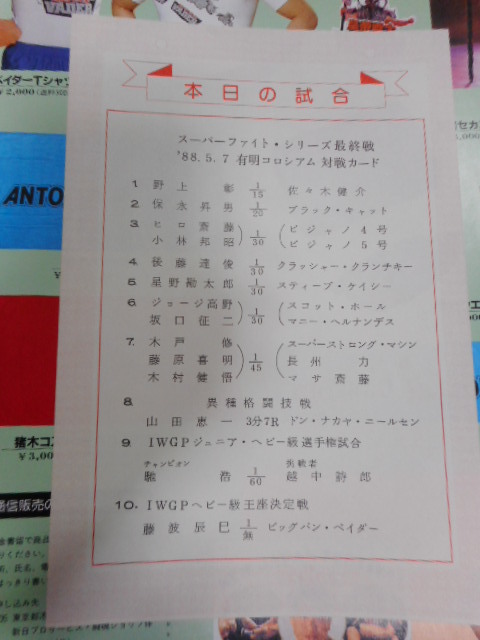 本日の試合
スーパーファイト・シリーズ最終戦
'88.5.7 有明コロシアム 対戦カード
1. 野上 彰 1/15 佐々木健介
2. 保永昇男 1/20 ブラック・キャット
3. ヒロ斎藤 小林邦昭 1/30 ビジャノ4号 ビジャノ5号
4. 後藤達俊 1/30 クラッシャー・クランチキー
5. 星野勘太郎 1/30 スティーブ・ケイシー
6. ジョージ高野 坂口征二 1/30 スコット・ホール マニー・ヘルナンデス
7. 木戸 修 藤原喜明 木村健悟 1/45 スーパーストロング・マシン 長州 力 マサ斎藤
8. 異種格闘技戦
山田恵一 3分7R ドン・ナカヤ・ニールセン
9 IWGPジュニア・ヘビー級選手権試合
チャンピオン 馳 浩 1/60 挑戦者 越中詩郎
10. IWGPヘビー級王座決定戦
藤波辰巳 1/無 ビッグバン・ベイダー
VADER
VADER
ベイダーTシャツ
¥2,000
ANTO
猪木コス
¥3,00
通信販売の